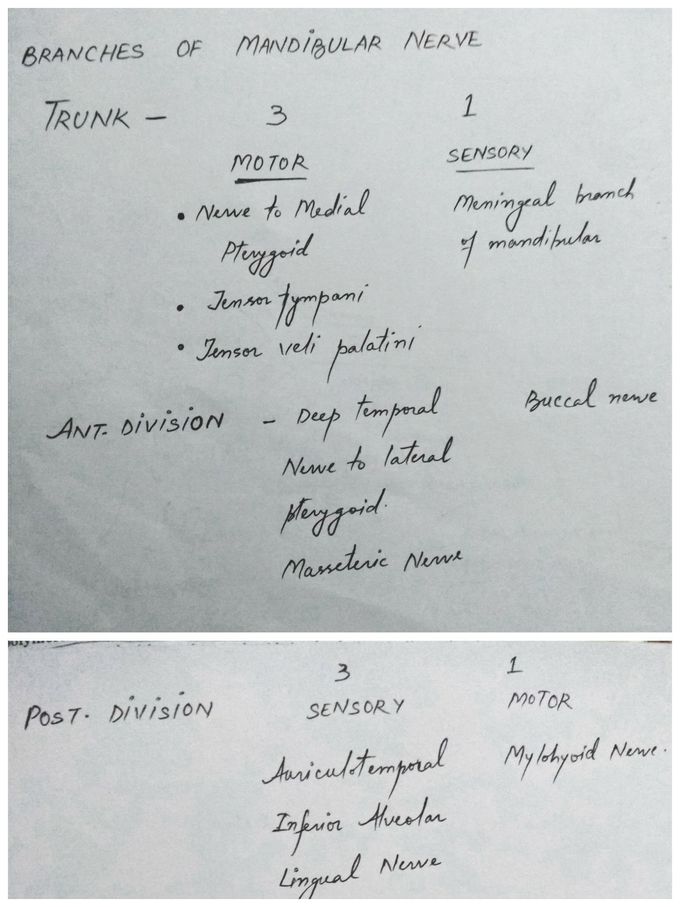 BRANCHES OF MANDIBULAR NERVE
TRUNK - 3 1
MOTOR SENSORY
• Nerve to Medial Meningeal branch
Pterygoid of mandibular
• Tensor tympani
• Tensor veli palatini
ANT. DIVISION - Deep temporal Buccal nerve
Nerve to lateral
pterygoid.
Masseteric Nerve
3 1
POST. DIVISION SENSORY MOTOR
Auriculotemporal Mylohyoid Nerve.
Inferior Alveolar
Lingual Nerve